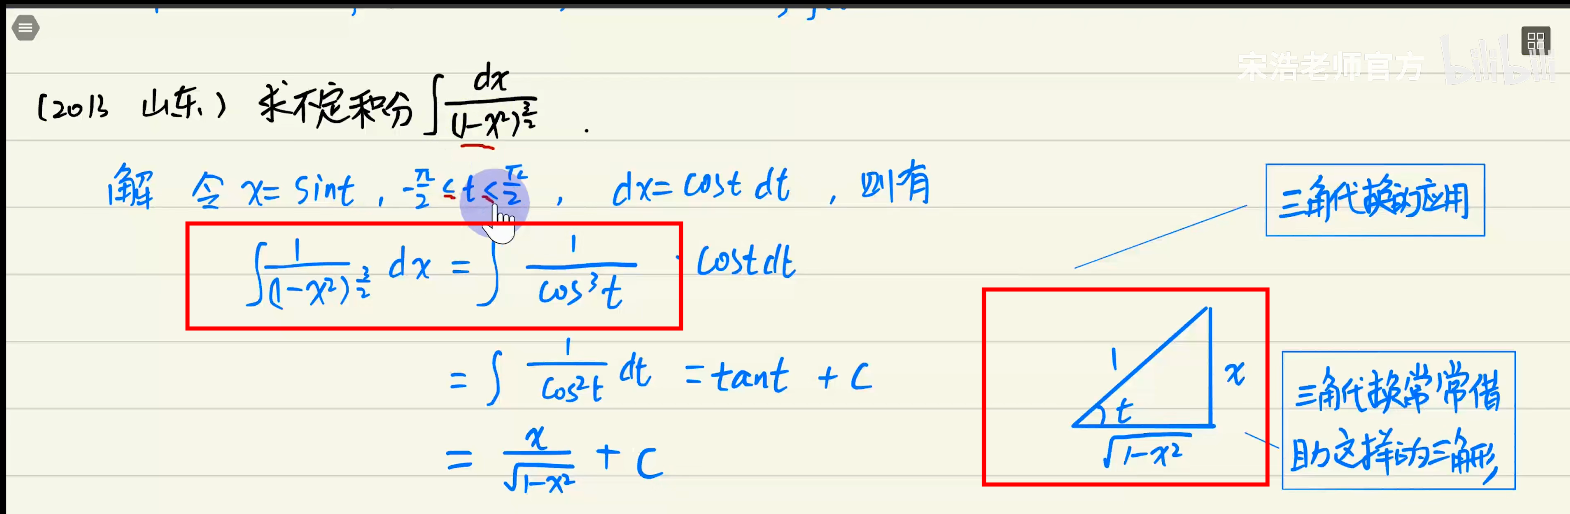 宋浩老师官方 bilibili
(2013 山东) 求不定积分 ∫ dx/(1-x²)^(3/2) .
解 令 x = sint , -π/2 ≤ t ≤ π/2 , dx = cost dt , 则有
∫ 1/(1-x²)^(3/2) dx = ∫ 1/cos³t · cost dt
= ∫ 1/cos²t dt = tant + C
= x/√(1-x²) + C
三角代换的应用
1
x
t
√(1-x²)
三角代换常常借
助这样的三角形